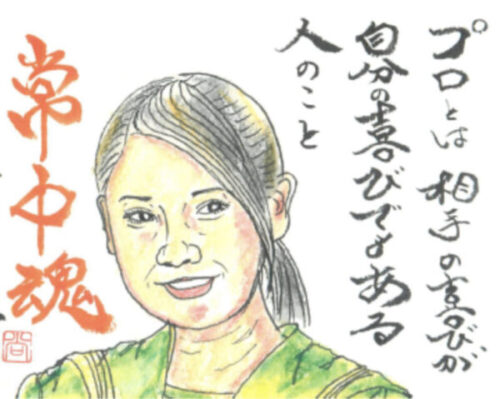 プロとは 相手の喜びが
自分の喜びでもある
人のこと
常中魂